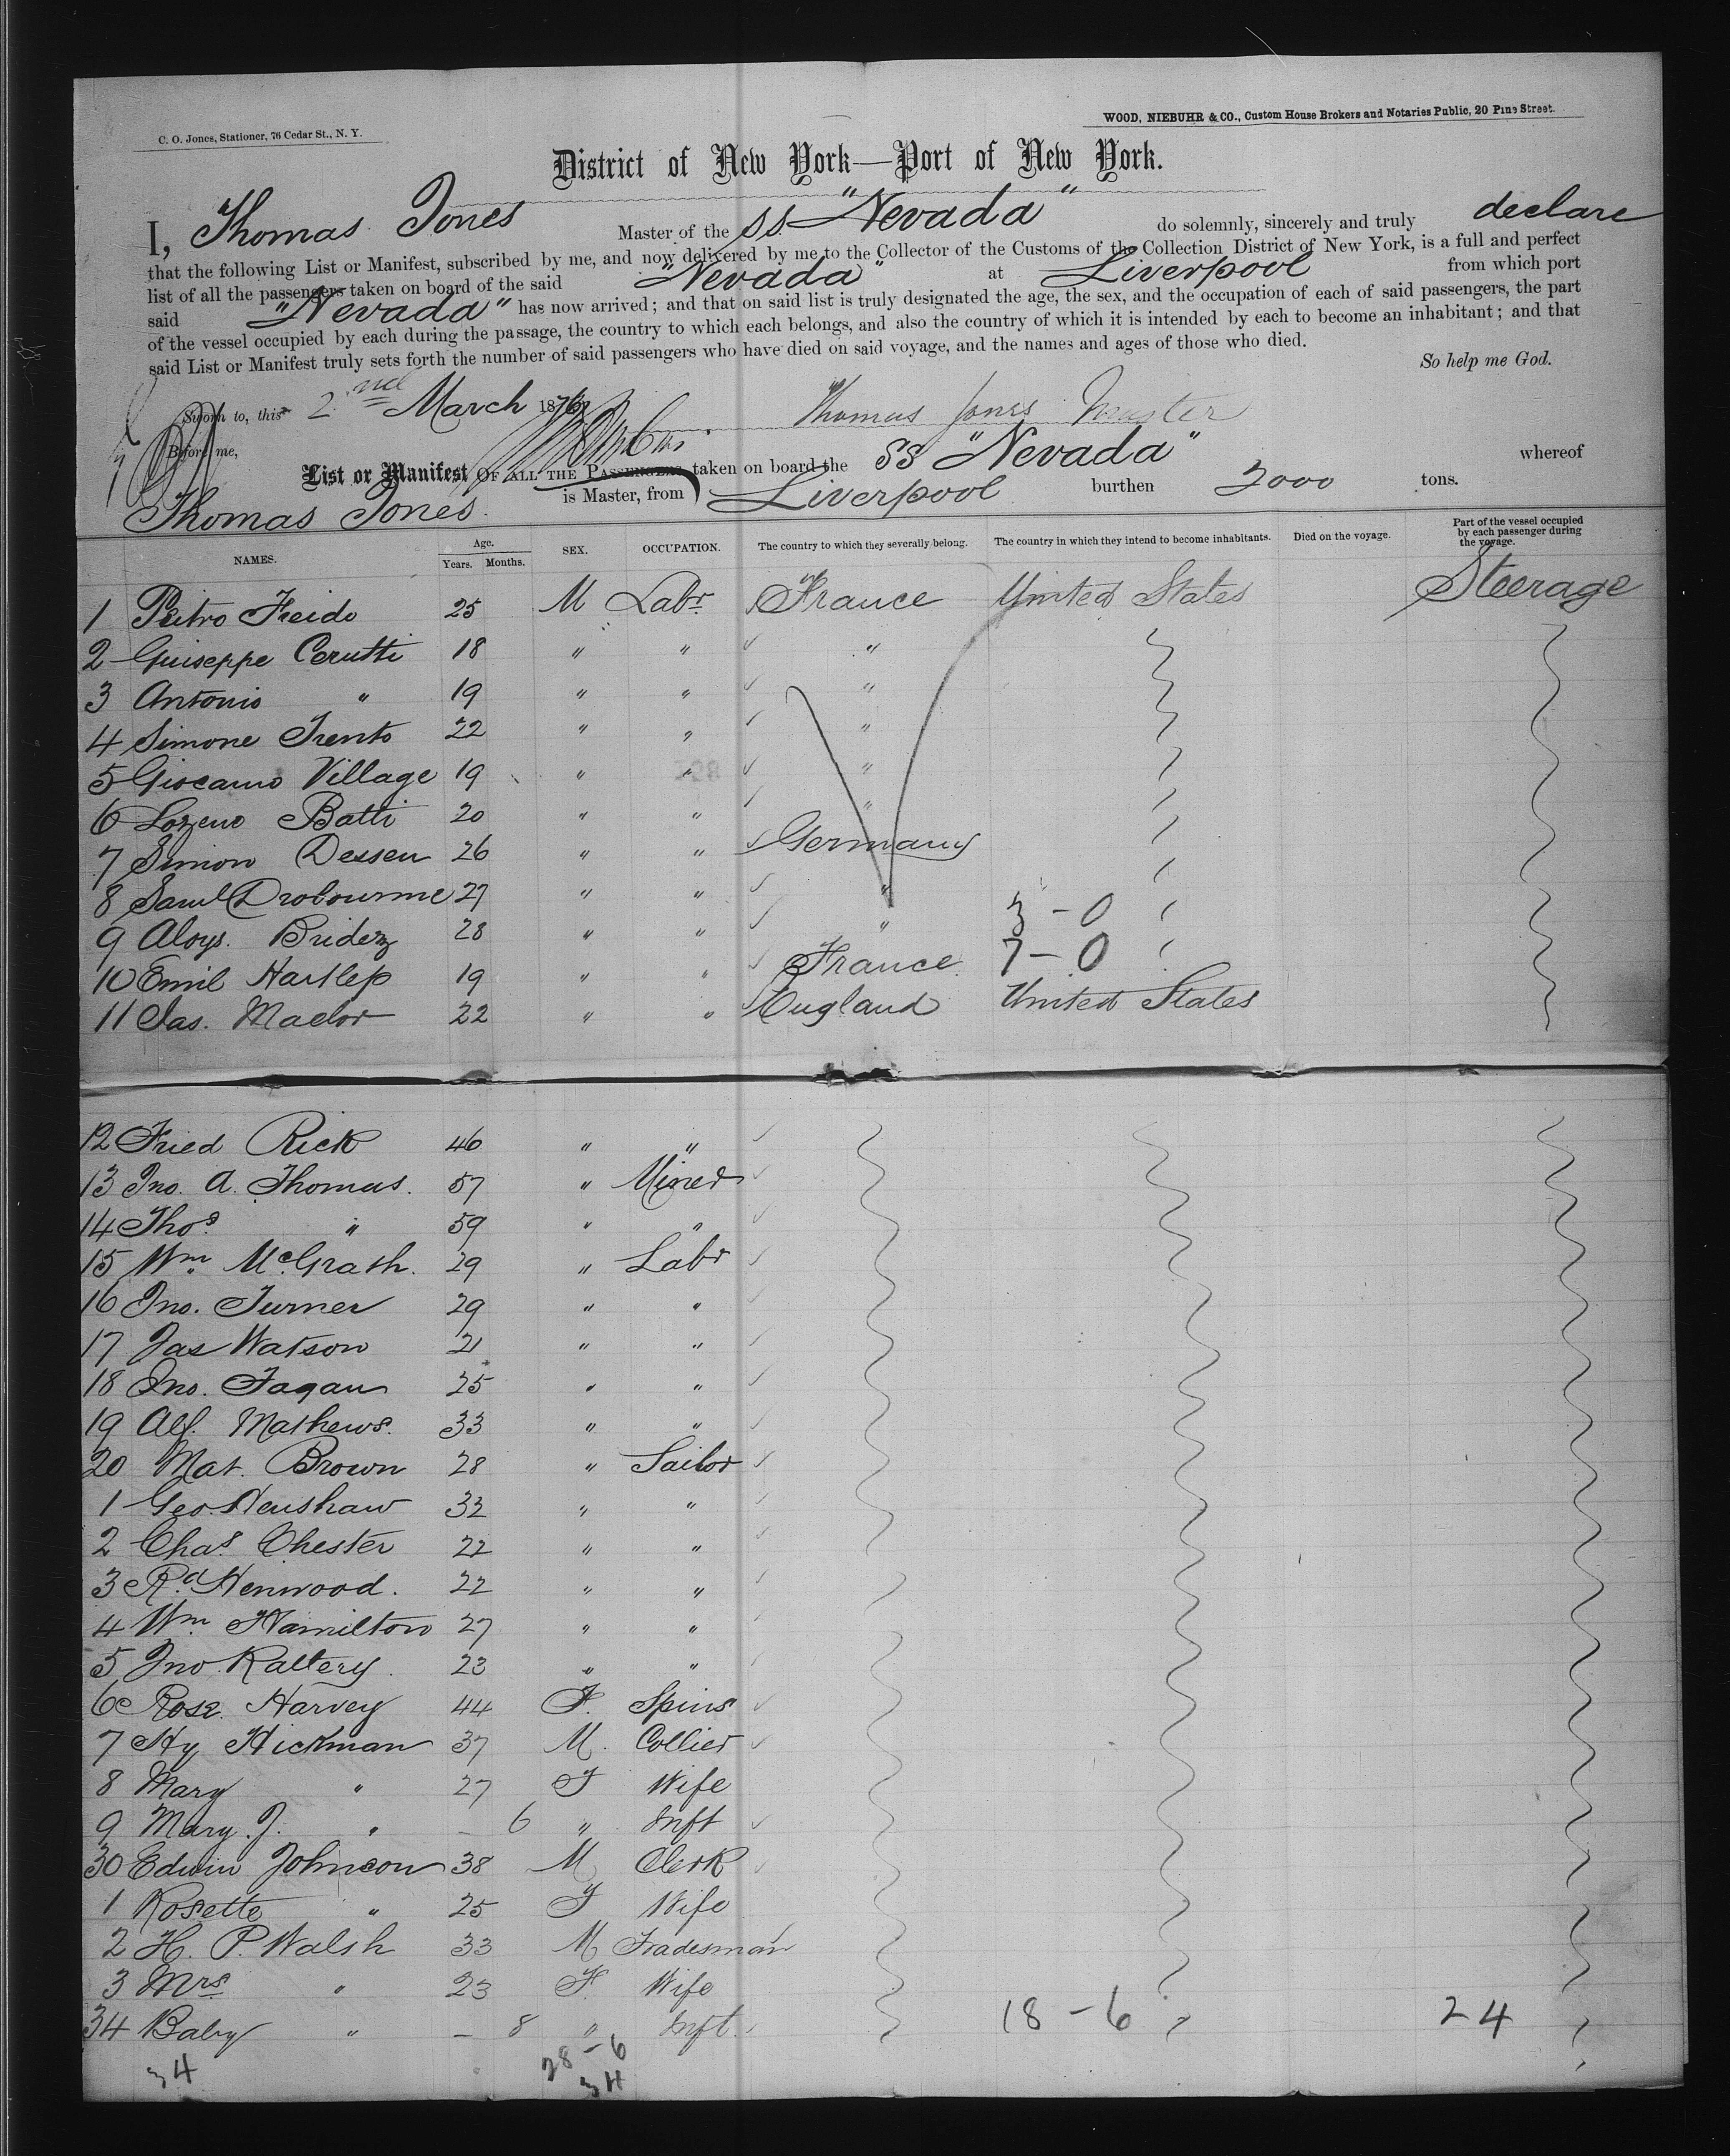 C. O. Jones, Stationer, 76 Cedar St., N. Y.
WOOD, NIEBUHR & CO., Custom House Brokers and Notaries Public, 20 Pine Street.
District of New York—Port of New York.
I, Thomas Jones Master of the SS "Nevada" do solemnly, sincerely and truly declare
that the following List or Manifest, subscribed by me, and now delivered by me to the Collector of the Customs of the Collection District of New York, is a full and perfect
list of all the passengers taken on board of the said "Nevada" at Liverpool from which port
said "Nevada" has now arrived; and that on said list is truly designated the age, the sex, and the occupation of each of said passengers, the part
of the vessel occupied by each during the passage, the country to which each belongs, and also the country of which it is intended by each to become an inhabitant; and that
said List or Manifest truly sets forth the number of said passengers who have died on said voyage, and the names and ages of those who died.
So help me God.
Sworn to, this 2nd March 1876
Thomas Jones Master
Before me,
List or Manifest OF ALL THE PASSENGERS taken on board the SS "Nevada" whereof
Thomas Jones is Master, from Liverpool burthen 3000 tons.
NAMES. Age. Years. Months. SEX. OCCUPATION. The country to which they severally belong. The country in which they intend to become inhabitants. Died on the voyage. Part of the vessel occupied by each passenger during the voyage.
1 Peitro Freido 25 M Labr. France United States Steerage
2 Guiseppe Cerutti 18 " " "
3 Antonio " 19 " " "
4 Simone Trento 22 " " "
5 Giocamo Village 19 " " "
6 Lozeno Batti 20 " " "
7 Simon Dessen 26 " " Germany
8 Saml Drobourne 27 " " "
9 Aloys. Bridez 28 " " " 3 - 0
10 Emil Hartlep 19 " " France 7 - 0
11 Jas. Maclor 22 " " England United States
12 Fried Rick 46 " "
13 Jno. A. Thomas. 57 " Miner
14 Thos. " 59 " "
15 Wm. McGrath. 29 " Labr
16 Jno. Turner 29 " "
17 Jas Watson 21 " "
18 Jno. Fagan 25 " "
19 Alf. Mathews. 33 " "
20 Mat. Brown 28 " Sailor
1 Geo. Henshaw 32 " "
2 Chas. Chester 22 " "
3 Rd. Henwood. 22 " "
4 Wm. Hamilton 27 " "
5 Jno. Raltery. 23 " "
6 Rose. Harvey 44 F. Spins
7 Hy Hickman 37 M. Collier
8 Mary " 27 F Wife
9 Mary. J. " - 6 " Inft
30 Edwin Johnson 38 M Clerk
1 Rosette " 25 F Wife
2 H. P. Walsh 33 M Tradesman
3 Mrs " 23 F. Wife
34 Baby " - 8 " Inft. 18 - 6 24
34 28 - 6
34